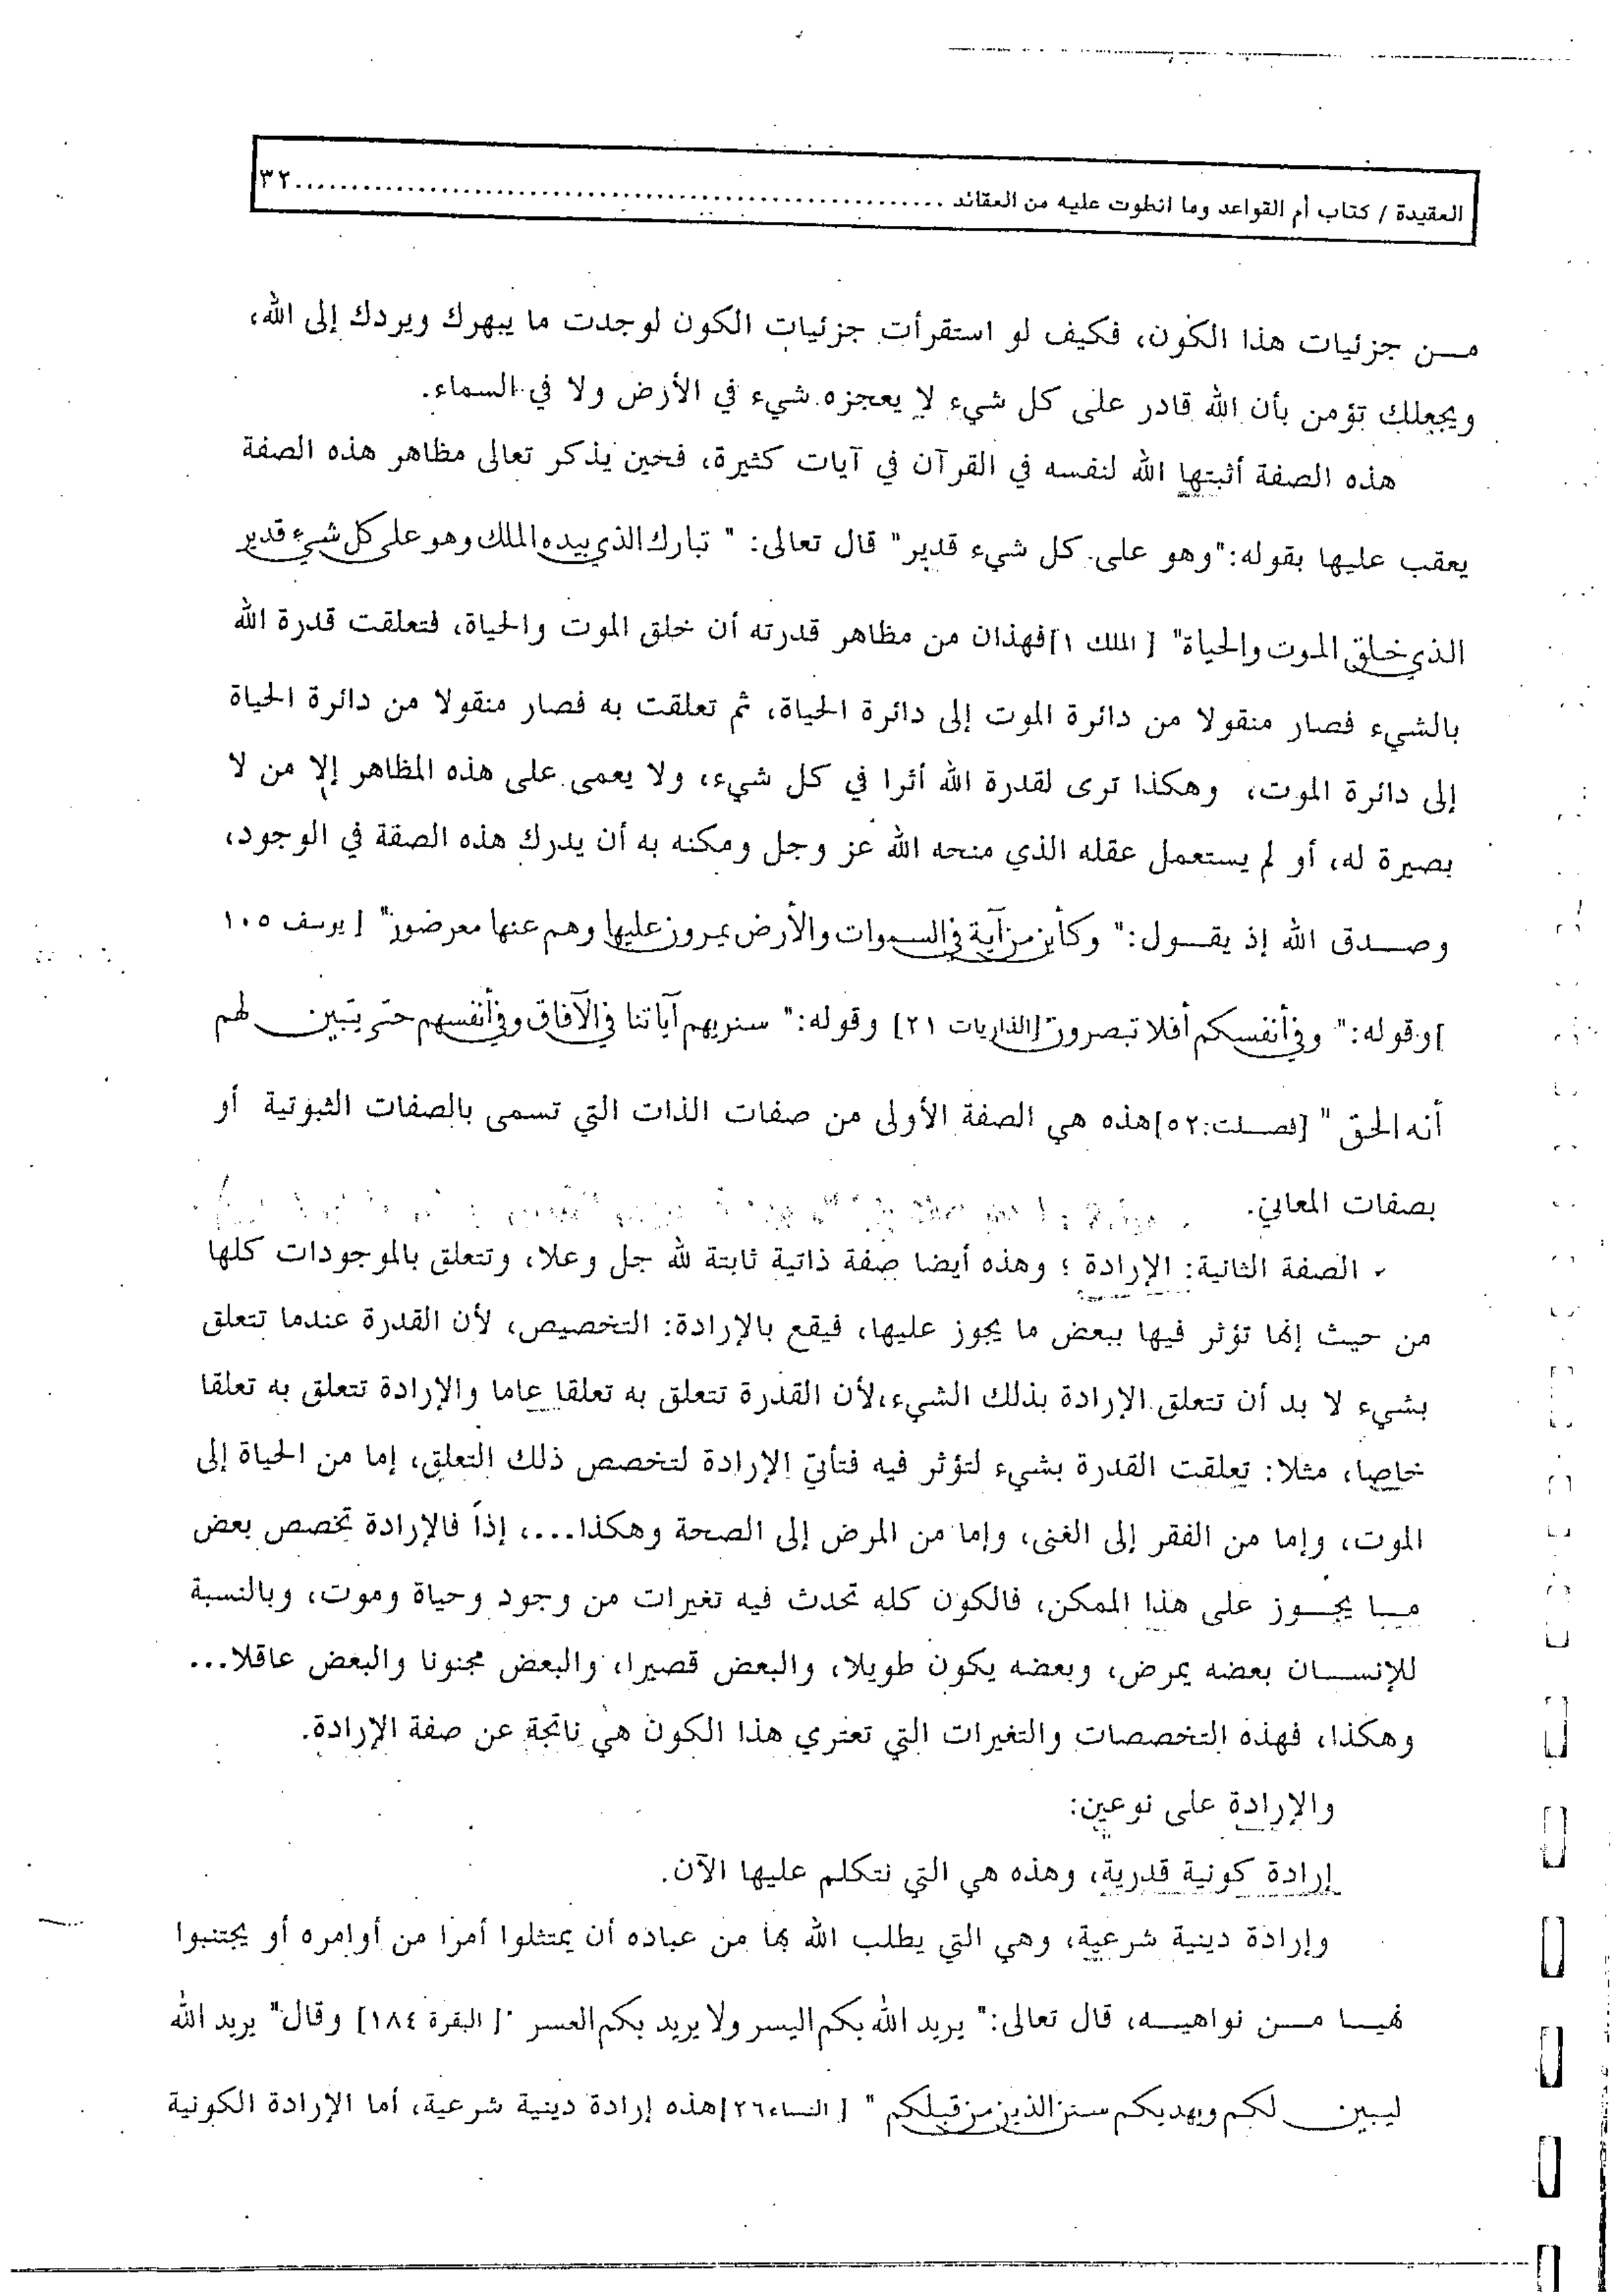 العقيدة / كتاب أم القواعد وما انطوت عليه من العقائد ........................................................٣٢
مـــن جزئيات هذا الكون، فكيف لو استقرأت جزئيات الكون لوجدت ما يبهرك ويردك إلى الله،
ويجعلك تؤمن بأن الله قادر على كل شيء لا يعجزه شيء في الأرض ولا في السماء.
هذه الصفة أثبتها الله لنفسه في القرآن في آيات كثيرة، فحين يذكر تعالى مظاهر هذه الصفة
يعقب عليها بقوله:"وهو على كل شيء قدير" قال تعالى: " تبارك الذي بيده الملك وهو على كل شيء قدير
الذي خلق الموت والحياة" [ الملك ١]فهذان من مظاهر قدرته أن خلق الموت والحياة، فتعلقت قدرة الله
بالشيء فصار منقولا من دائرة الموت إلى دائرة الحياة، ثم تعلقت به فصار منقولا من دائرة الحياة
إلى دائرة الموت، وهكذا ترى لقدرة الله أثرا في كل شيء، ولا يعمى على هذه المظاهر إلا من لا
بصيرة له، أو لم يستعمل عقله الذي منحه الله عز وجل ومكنه به أن يدرك هذه الصفة في الوجود،
وصـــدق الله إذ يقـــول:" وكأين من آية في السموات والأرض يمرون عليها وهم عنها معرضون" [ يوسف ١٠٥
]وقوله:" وفي أنفسكم أفلا تبصرون"[الذاريات ٢١] وقوله:" سنريهم آياتنا في الآفاق وفي أنفسهم حتى يتبين لهم
أنه الحق " [فصـــلت:٥٢]هذه هي الصفة الأولى من صفات الذات التي تسمى بالصفات الثبوتية أو
بصفات المعاني.
الصفة الثانية: الإرادة ؛ وهذه أيضا صفة ذاتية ثابتة لله جل وعلا، وتتعلق بالموجودات كلها
من حيث إنها تؤثر فيها ببعض ما يجوز عليها، فيقع بالإرادة: التخصيص، لأن القدرة عندما تتعلق
بشيء لا بد أن تتعلق الإرادة بذلك الشيء،لأن القدرة تتعلق به تعلقا عاما والإرادة تتعلق به تعلقا
خاصا، مثلا: تعلقت القدرة بشيء لتؤثر فيه فتأتي الإرادة لتخصص ذلك التعلق، إما من الحياة إلى
الموت، وإما من الفقر إلى الغنى، وإما من المرض إلى الصحة وهكذا...، إذاً فالإرادة تخصص بعض
مـــا يجـــوز على هذا الممكن، فالكون كله تحدث فيه تغيرات من وجود وحياة وموت، وبالنسبة
للإنســـان بعضه يمرض، وبعضه يكون طويلا، والبعض قصيرا، والبعض مجنونا والبعض عاقلا...
وهكذا، فهذه التخصصات والتغيرات التي تعتري هذا الكون هي ناتجة عن صفة الإرادة.
والإرادة على نوعين:
إرادة كونية قدرية، وهذه هي التي نتكلم عليها الآن.
وإرادة دينية شرعية، وهي التي يطلب الله بها من عباده أن يمتثلوا أمرا من أوامره أو يجتنبوا
نهيـــا مـــن نواهيـــه، قال تعالى:" يريد الله بكم اليسر ولا يريد بكم العسر "[ البقرة ١٨٤] وقال" يريد الله
ليبين لكم ويهديكم سنن الذين من قبلكم " [ النساء٢٦]هذه إرادة دينية شرعية، أما الإرادة الكونية